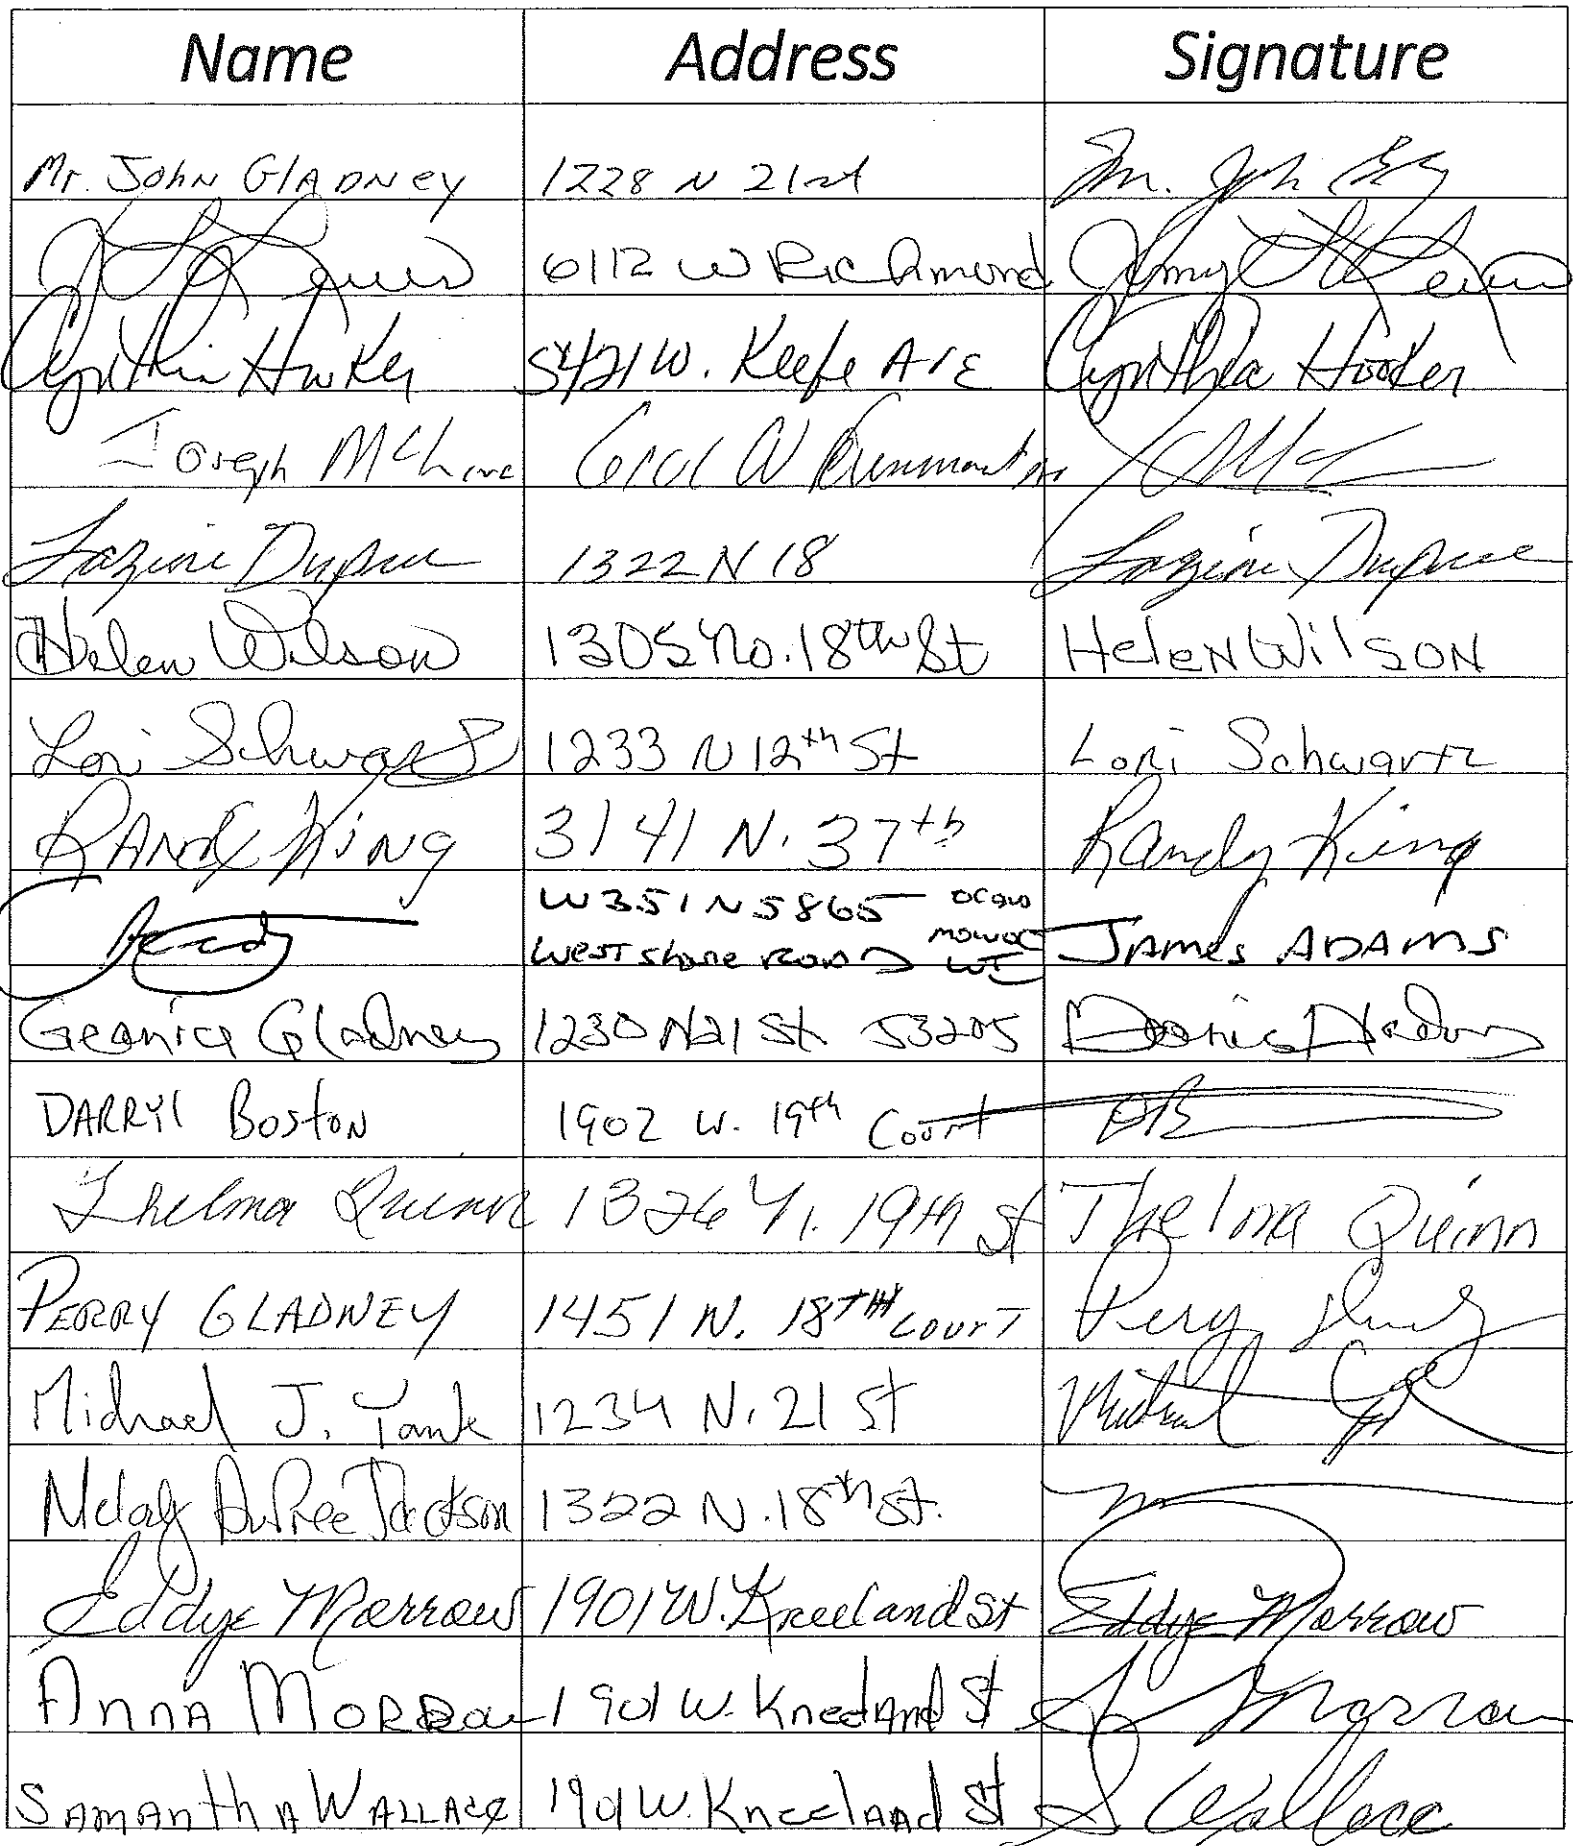 Name Address Signature
Mr. JOHN GLADNEY 1228 N 21st Mr. John
Lewis 6112 W Richmond Jimmy L Lewis
Cynthia Hooker 5421 W. Keefe AVE Cynthia Hooker
Joseph 6101 W
Lazine Dupree 1322 N 18 Lazine Dupree
Helen Wilson 1305 No. 18th St Helen Wilson
Lori Schwartz 1233 N 12th St Lori Schwartz
RANDY KING 3141 N. 37th Randy King
W351N5865 OCONO
WEST SHORE ROAD MOWOC WI JAMES ADAMS
Geanice Gladney 1230 N 21 St 53205
DARRYl Boston 1902 W. 19th Court DB
Thelma Quinn 1326 N. 19th St Thelma Quinn
PERRY GLADNEY 1451 N. 18TH COURT Perry
Michael J. Tank 1234 N. 21 St Michael
Melody DuPree Jackson 1322 N. 18th St.
Eddye Morrow 1901 W. Kneeland St Eddye Morrow
Anna Morrow 1901 W. Kneeland St Morrow
Samantha Wallace 1901 W. Kneeland St S Wallace